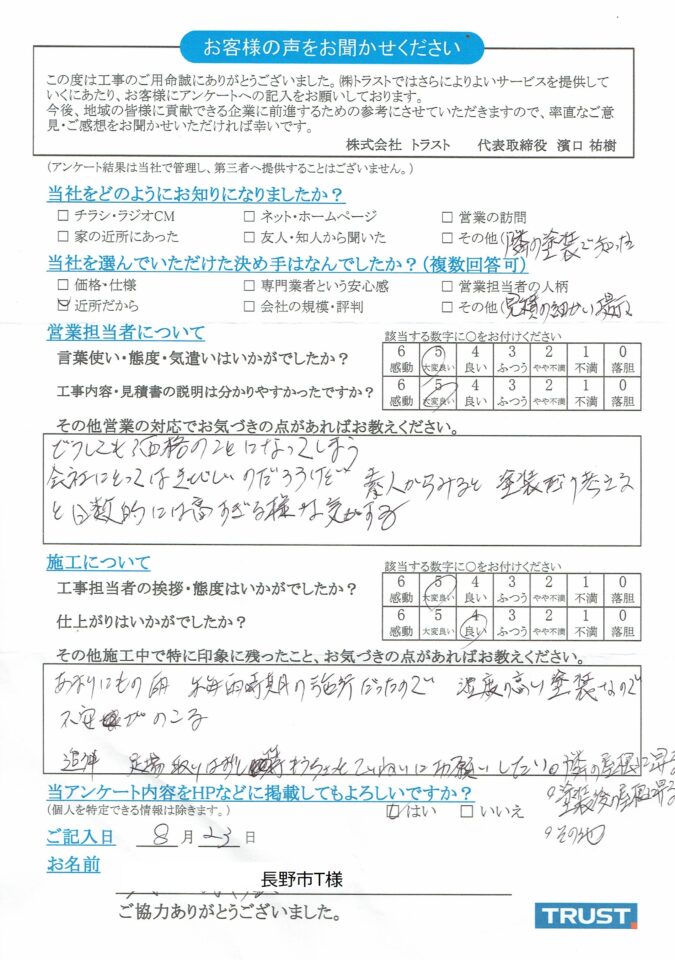 お客様の声をお聞かせください
この度は工事のご用命誠にありがとうございました。㈱トラストではさらによりよいサービスを提供して
いくにあたり、お客様にアンケートへの記入をお願いしております。
今後、地域の皆様に貢献できる企業に前進するための参考にさせていただきますので、率直なご意
見・ご感想をお聞かせいただければ幸いです。
株式会社 トラスト 代表取締役 濱口 祐樹
(アンケート結果は当社で管理し、第三者へ提供することはございません。)
当社をどのようにお知りになりましたか？
□ チラシ・ラジオCM □ ネット・ホームページ □ 営業の訪問
□ 家の近所にあった □ 友人・知人から聞いた □ その他(隣の塗装で知った
当社を選んでいただけた決め手はなんでしたか？(複数回答可)
□ 価格・仕様 □ 専門業者という安心感 □ 営業担当者の人柄
☑ 近所だから □ 会社の規模・評判 □ その他(見積の細かい
営業担当者について
該当する数字に○をお付けください
言葉使い・態度・気遣いはいかがでしたか？
6 5 4 3 2 1 0
感動 大変良い 良い ふつう やや不満 不満 落胆
工事内容・見積書の説明は分かりやすかったですか？
6 5 4 3 2 1 0
感動 大変良い 良い ふつう やや不満 不満 落胆
その他営業の対応でお気づきの点があればお教えください。
どうしても価格のことになってしまう
会社にとってはきびしいのだろうけど 素人からみると 塗装だけ考える
と日数的には高すぎる様な気がする
施工について
該当する数字に○をお付けください
工事担当者の挨拶・態度はいかがでしたか？
6 5 4 3 2 1 0
感動 大変良い 良い ふつう やや不満 不満 落胆
仕上がりはいかがでしたか？
6 5 4 3 2 1 0
感動 大変良い 良い ふつう やや不満 不満 落胆
その他施工中で特に印象に残ったこと、お気づきの点があればお教えください。
あまりにもの雨 の施行だったので 湿度の高い塗装なので
不安がのこる
追伸 足場 ていねいにお願いしたい。隣の屋根に昇る
塗装後の屋根に昇る
その他
当アンケート内容をHPなどに掲載してもよろしいですか？
(個人を特定できる情報は除きます。)
☑ はい □ いいえ
ご記入日 8 月 23 日
お名前
長野市T様
ご協力ありがとうございました。
TRUST.